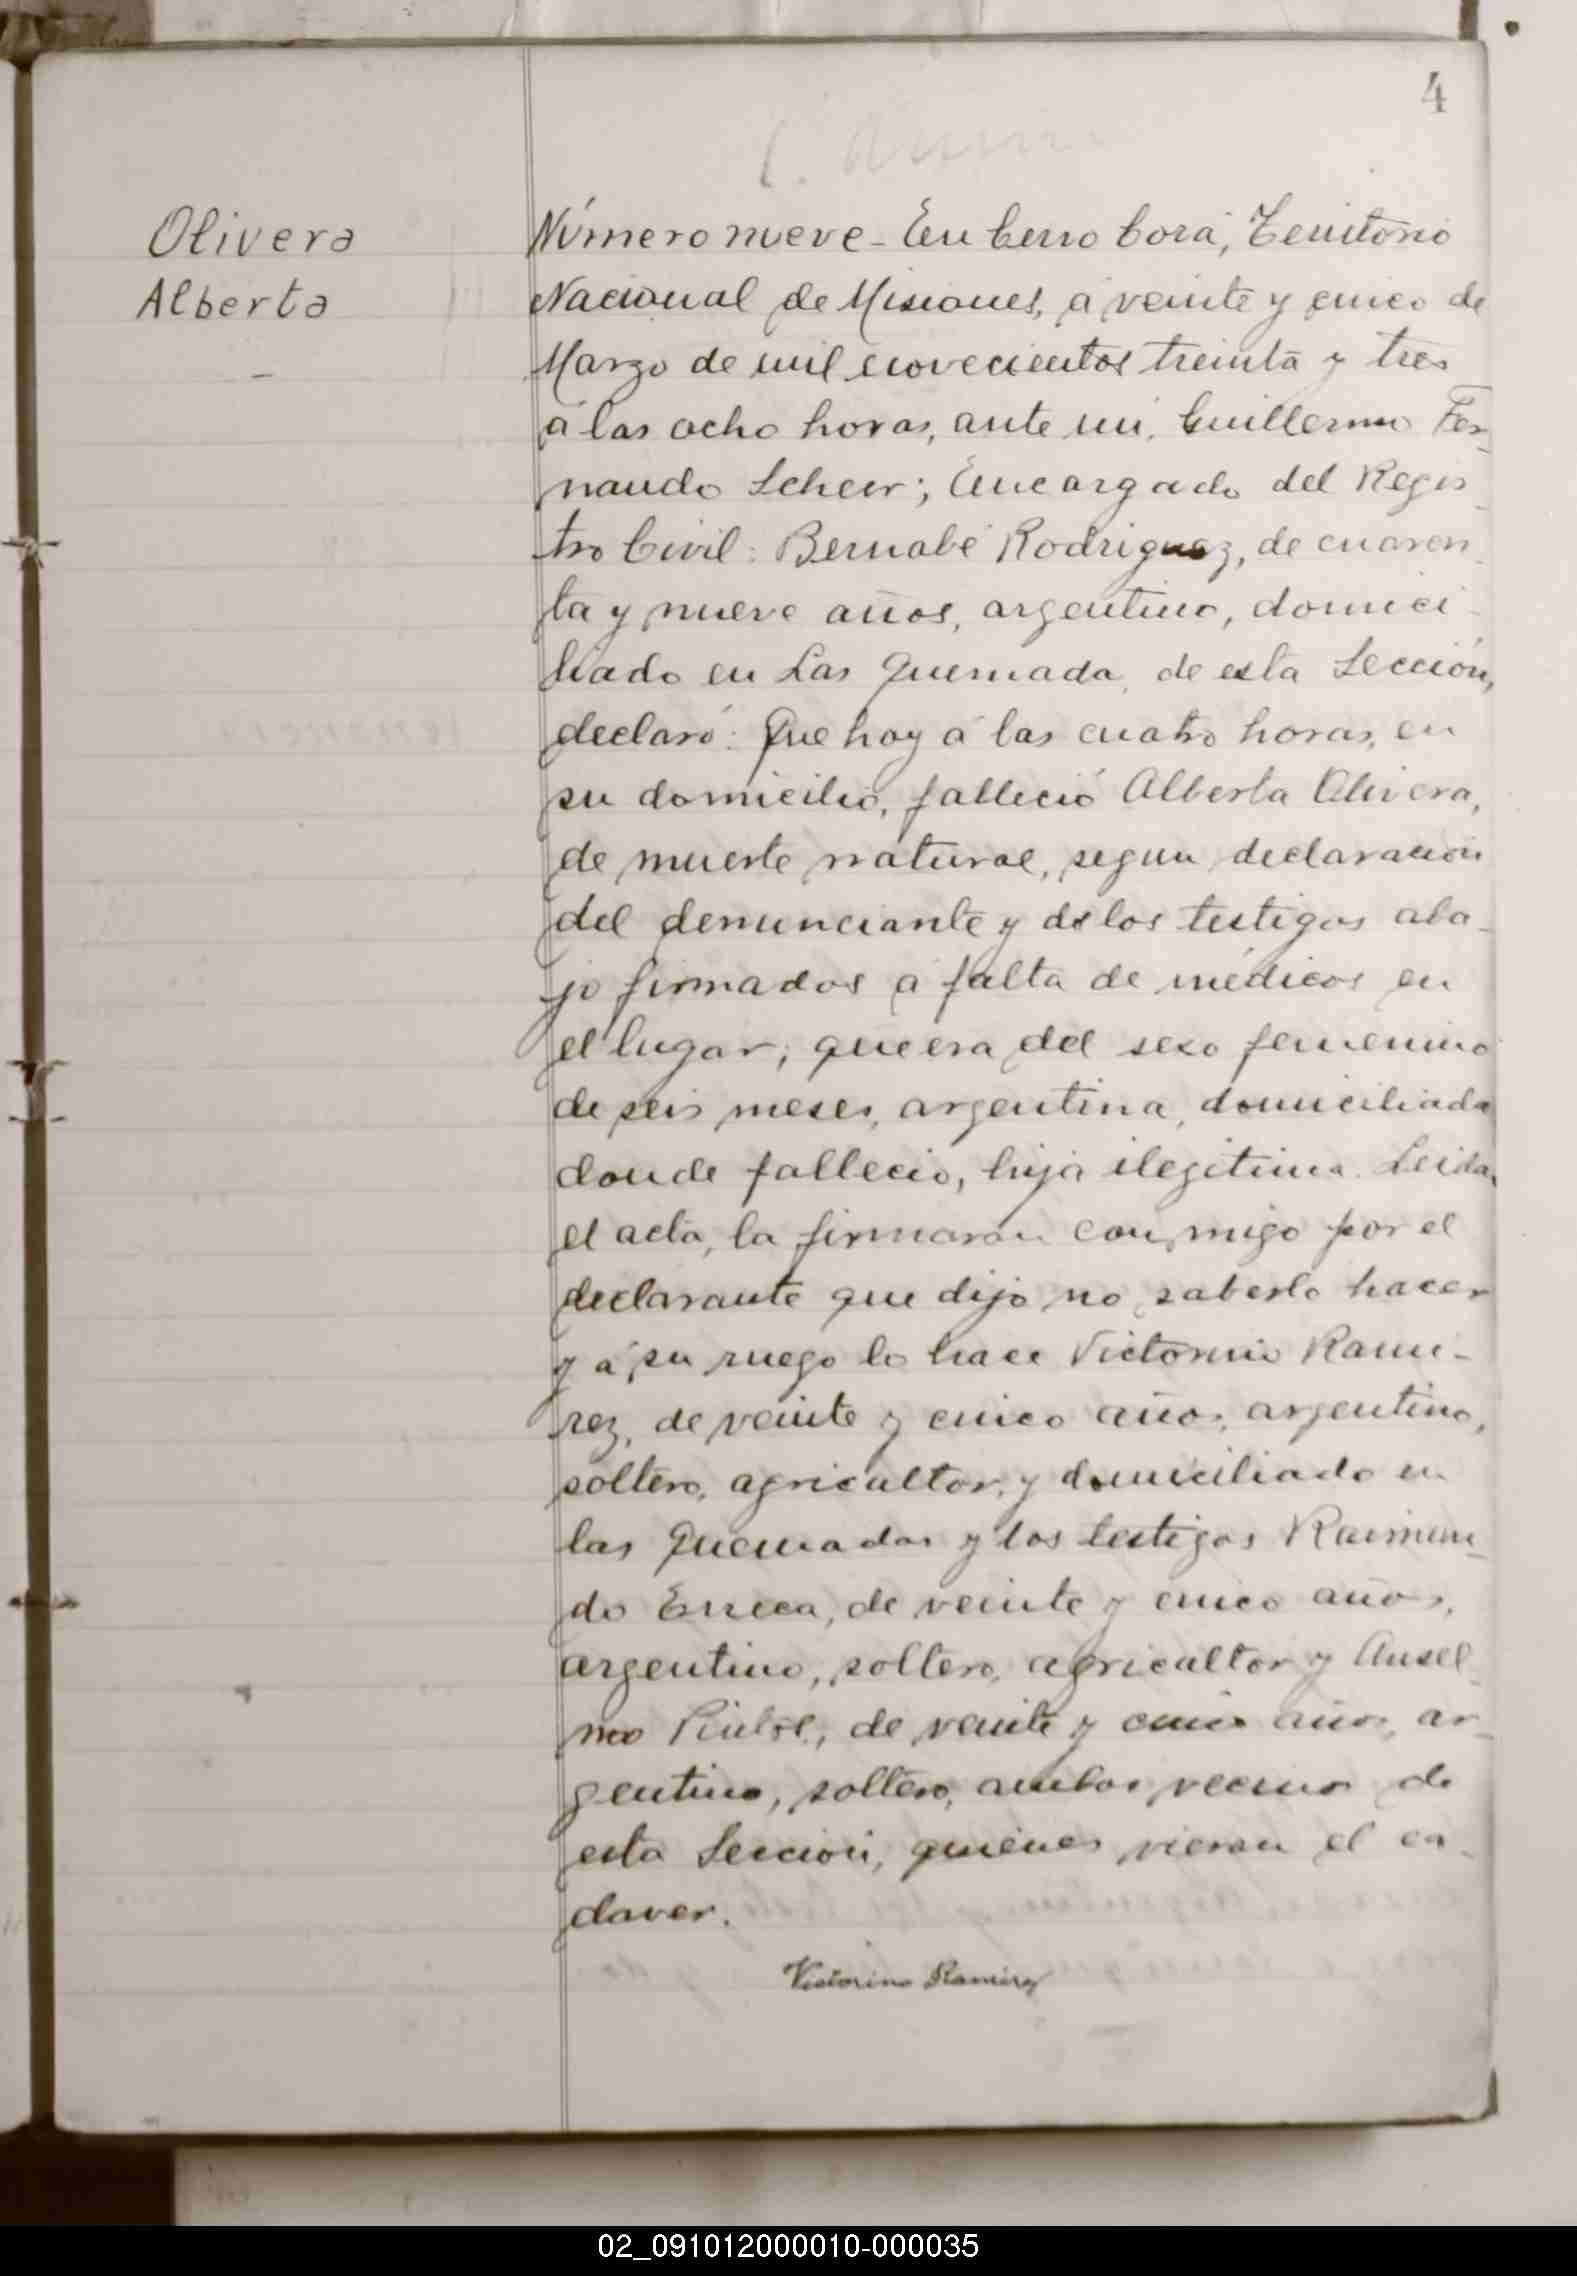 4
Olivera
Alberta
-
Número nueve - En Cerro Corá, Territorio
Nacional de Misiones, á veinte y cinco de
Marzo de mil novecientos treinta y tres
á las ocho horas, ante mi, Guillermo Fer-
nando Scheer; Encargado del Regis-
tro Civil: Bernabé Rodriguez, de cuaren-
ta y nueve años, argentino, domici-
liado en Las Quemada, de esta Sección,
declaró: Que hoy á las cuatro horas, en
su domicilio, falleció Alberta Olivera,
de muerte natural, segun declaración
del denunciante y de los testigos aba-
jo firmados á falta de médicos en
el lugar; que era del sexo femenino
de seis meses, argentina, domiciliada
donde fallecio, hija ilegitima. Leida
el acta, la firmaron conmigo por el
declarante que dijo no saberlo hacer
y á su ruego lo hace Victorino Rami-
rez, de veinte y cinco años, argentino,
soltero, agricultor, y domiciliado en
las Quemadas y los testigos Raimun-
do Erreca, de veinte y cinco años,
argentino, soltero, agricultor y Ansel-
mo de veinte y cinco años, ar-
gentino, soltero, ambos vecinos de
esta Sección, quienes vieron el ca-
daver.
Victorino Ramirez
02_091012000010-000035